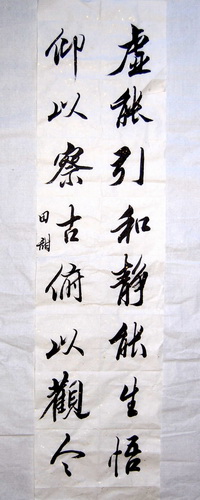 虚能引和静能生悟
仰以察古俯以觀今
田甜